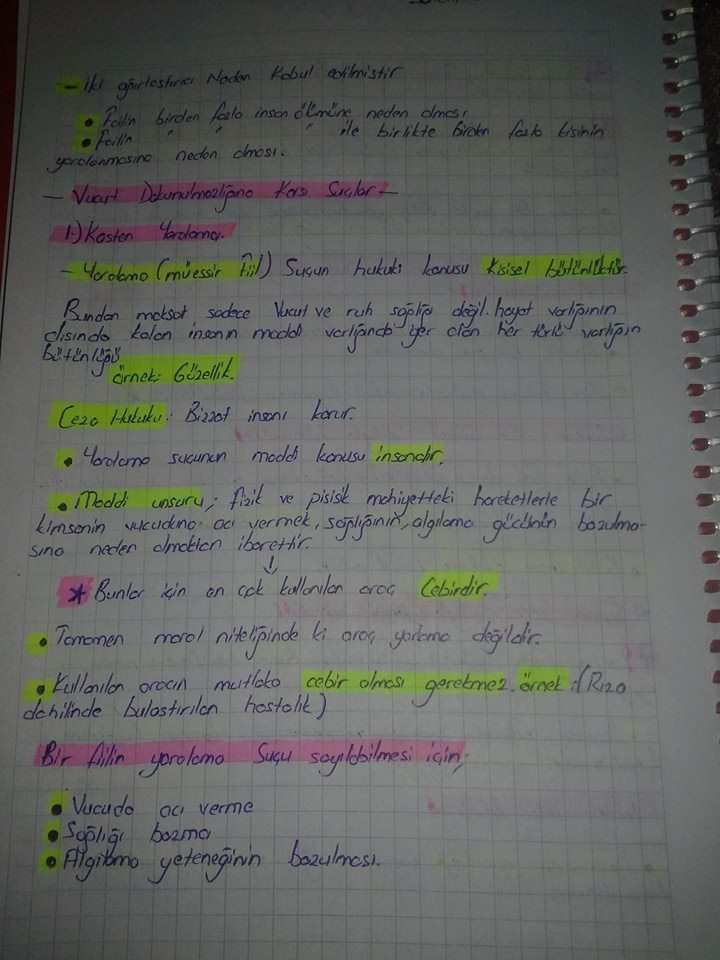 - İki ağırlaştırıcı Neden Kabul edilmiştir
• Failin birden fazla insan ölümüne neden olması
• Failin " " " ile birlikte Birden fazla kisinin
yaralanmasına neden olması.
- Vucut Dokunulmazlığına Karsı Suçlar -
1.) Kasten Yaralama.
- Yaralama (müessir fiil) Suçun hukuki konusu Kisisel bütünlüktür.
Bundan maksat sadece Vucut ve ruh sağlığı değil. hayat varlığının
disinda kalan insanın maddi varlığında yer alan her türlü varlığın
bütünlüğü
örnek: Güzellik.
Ceza Hukuku: Bizzat insanı korur.
• Yaralama suçunun maddi konusu insandır.
• Maddi unsuru; fizik ve pisisk mahiyetteki hareketlerle bir
kimsenin vucuduna acı vermek, sağlığının, algılama gücünün bozulma-
sına neden olmaktan ibarettir.
↓
* Bunlar için en çok kullanılan araç Cebirdir.
• Tamamen moral niteliğinde ki araç yarlama değildir.
• Kullanılan aracın mutlaka cebir olması gerekmez. örnek: (Rıza
dahilinde bulaştırılan hastalık)
Bir fiilin yaralama Suçu sayılabilmesi için;
• Vucuda acı verme
• Sağlığı bozma
• Algılama yeteneğinin bozulması.